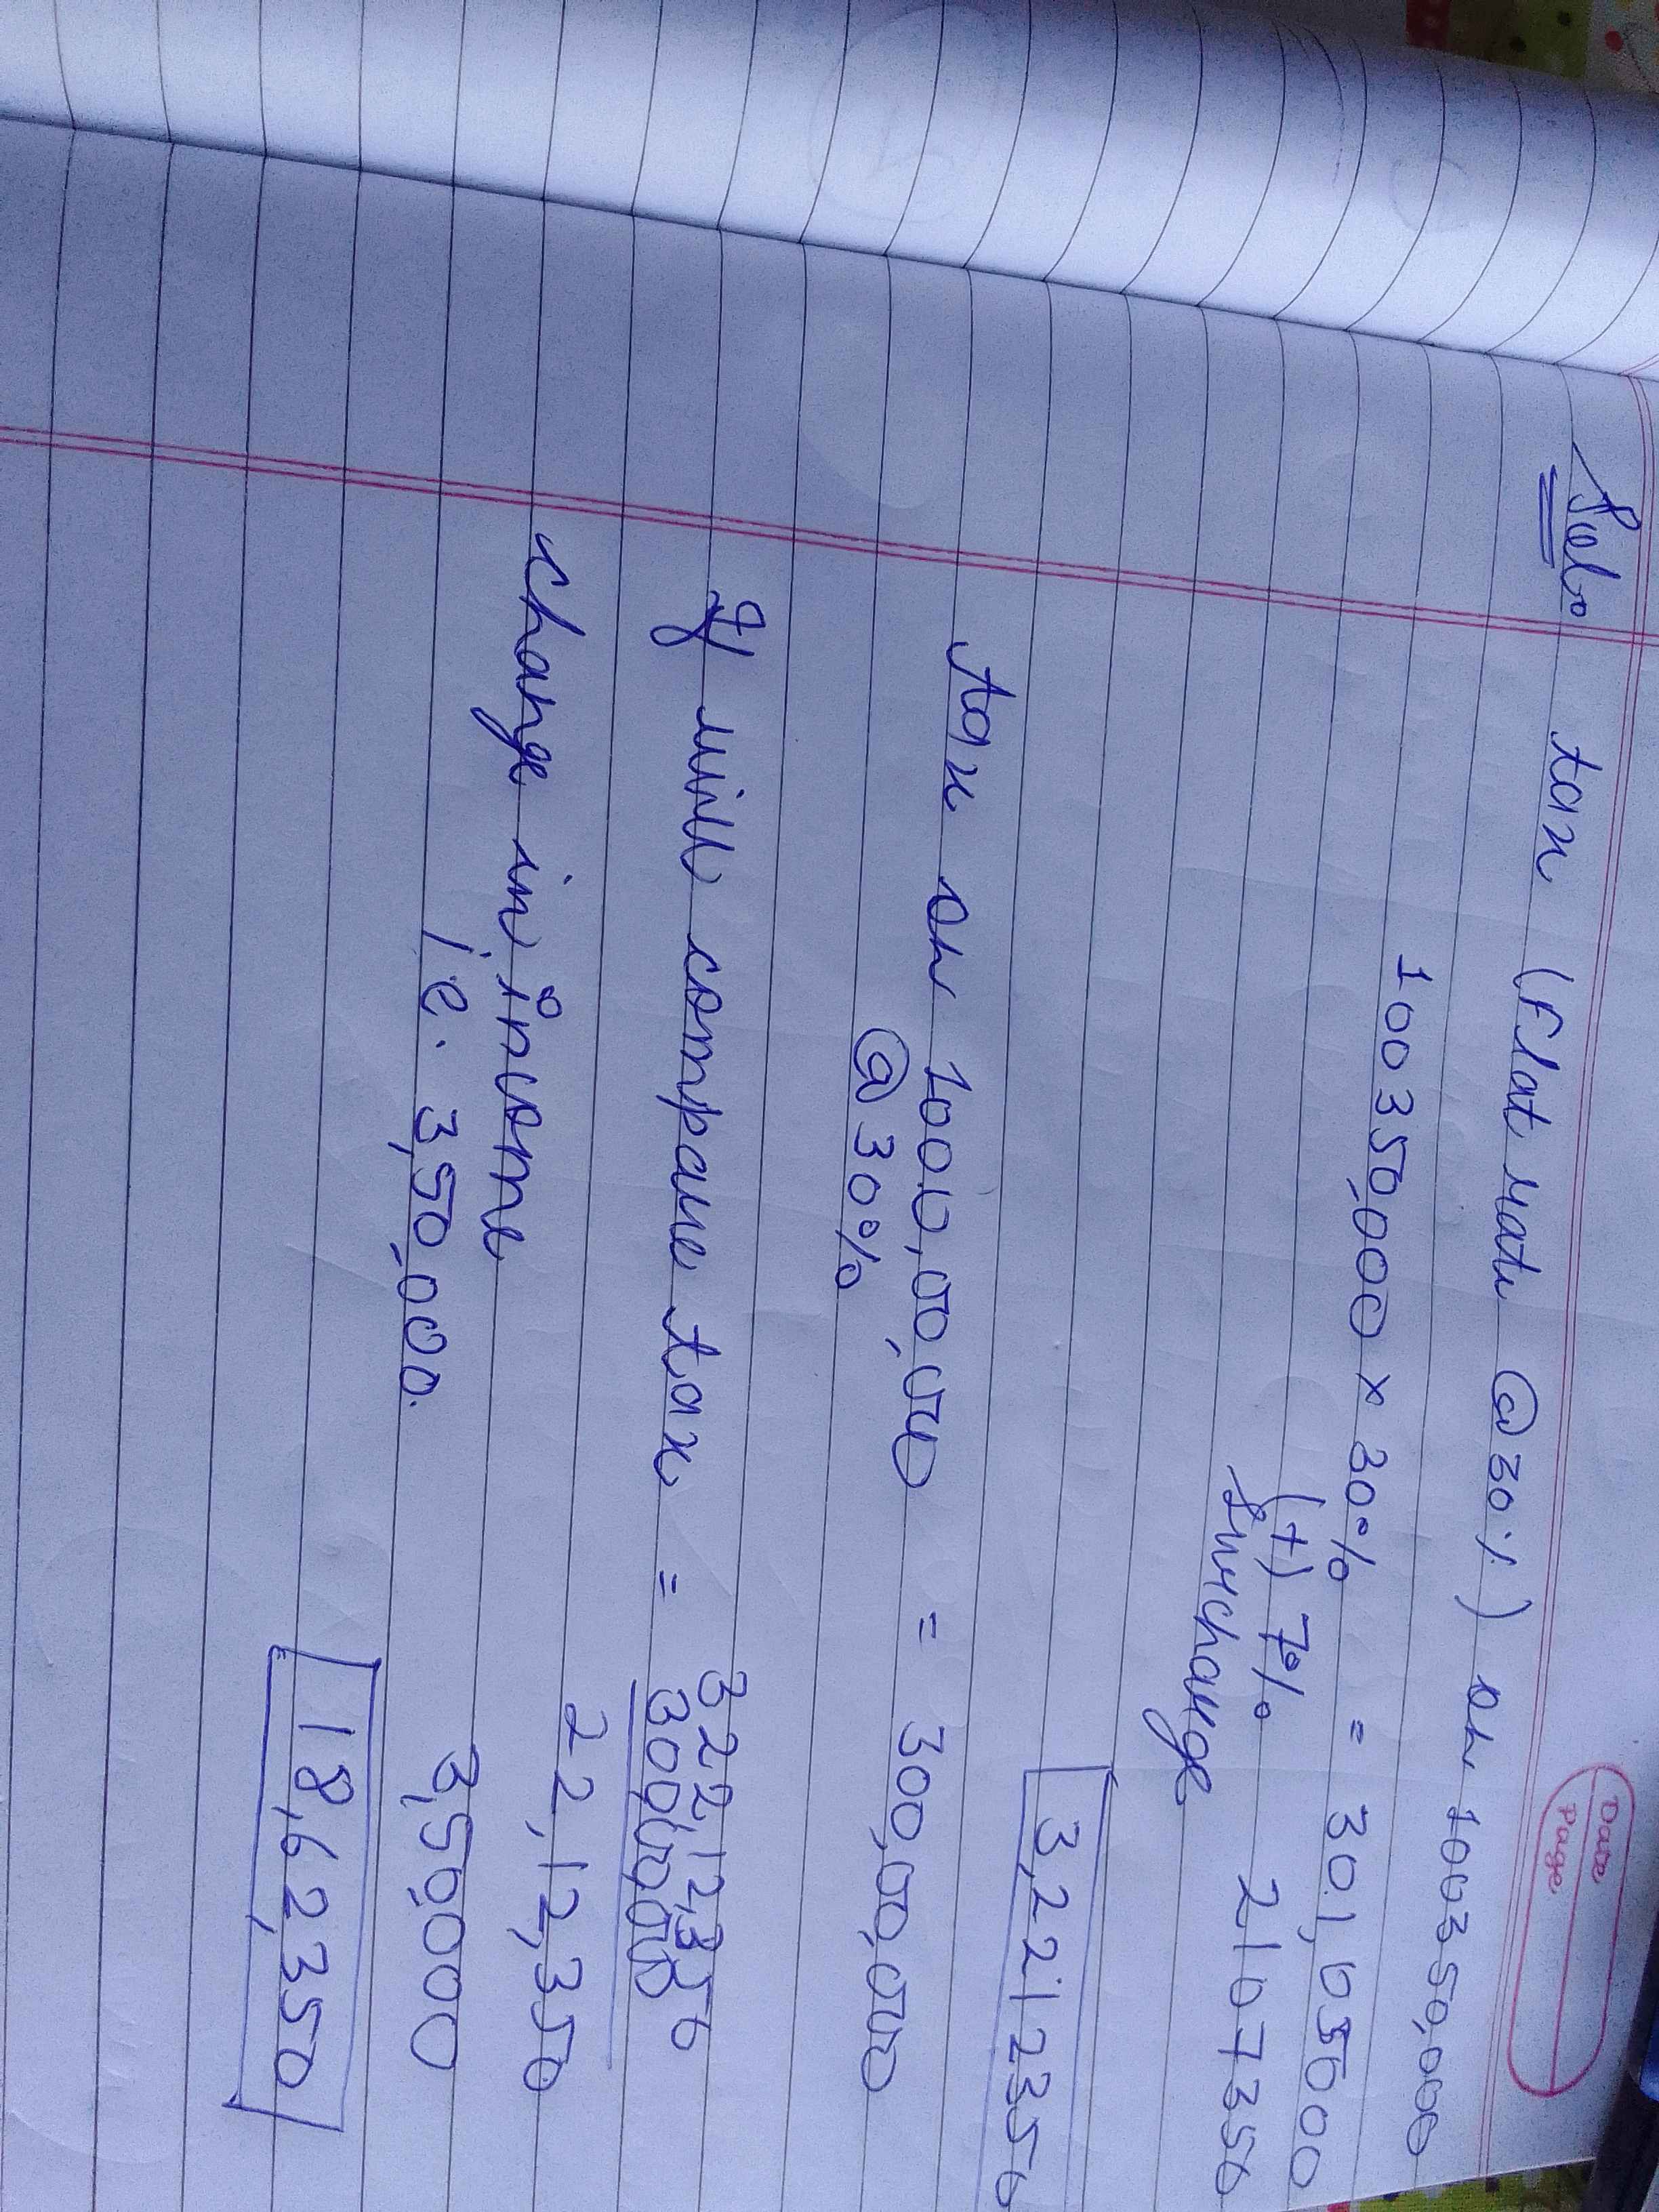 Date
Page
Solo tax (Flat rate @30%) on 100350,000
100350,000 × 30% = 301,05000
(+) 7% 2107350
Surcharge
3,2212350
tax on 1000,00,000 = 300,00,000
@ 30%
If will compare tax = 322,12,350
300,00,000
22,12,350
change in income 3,50,000
i.e. 3,50,000.
18,62,350